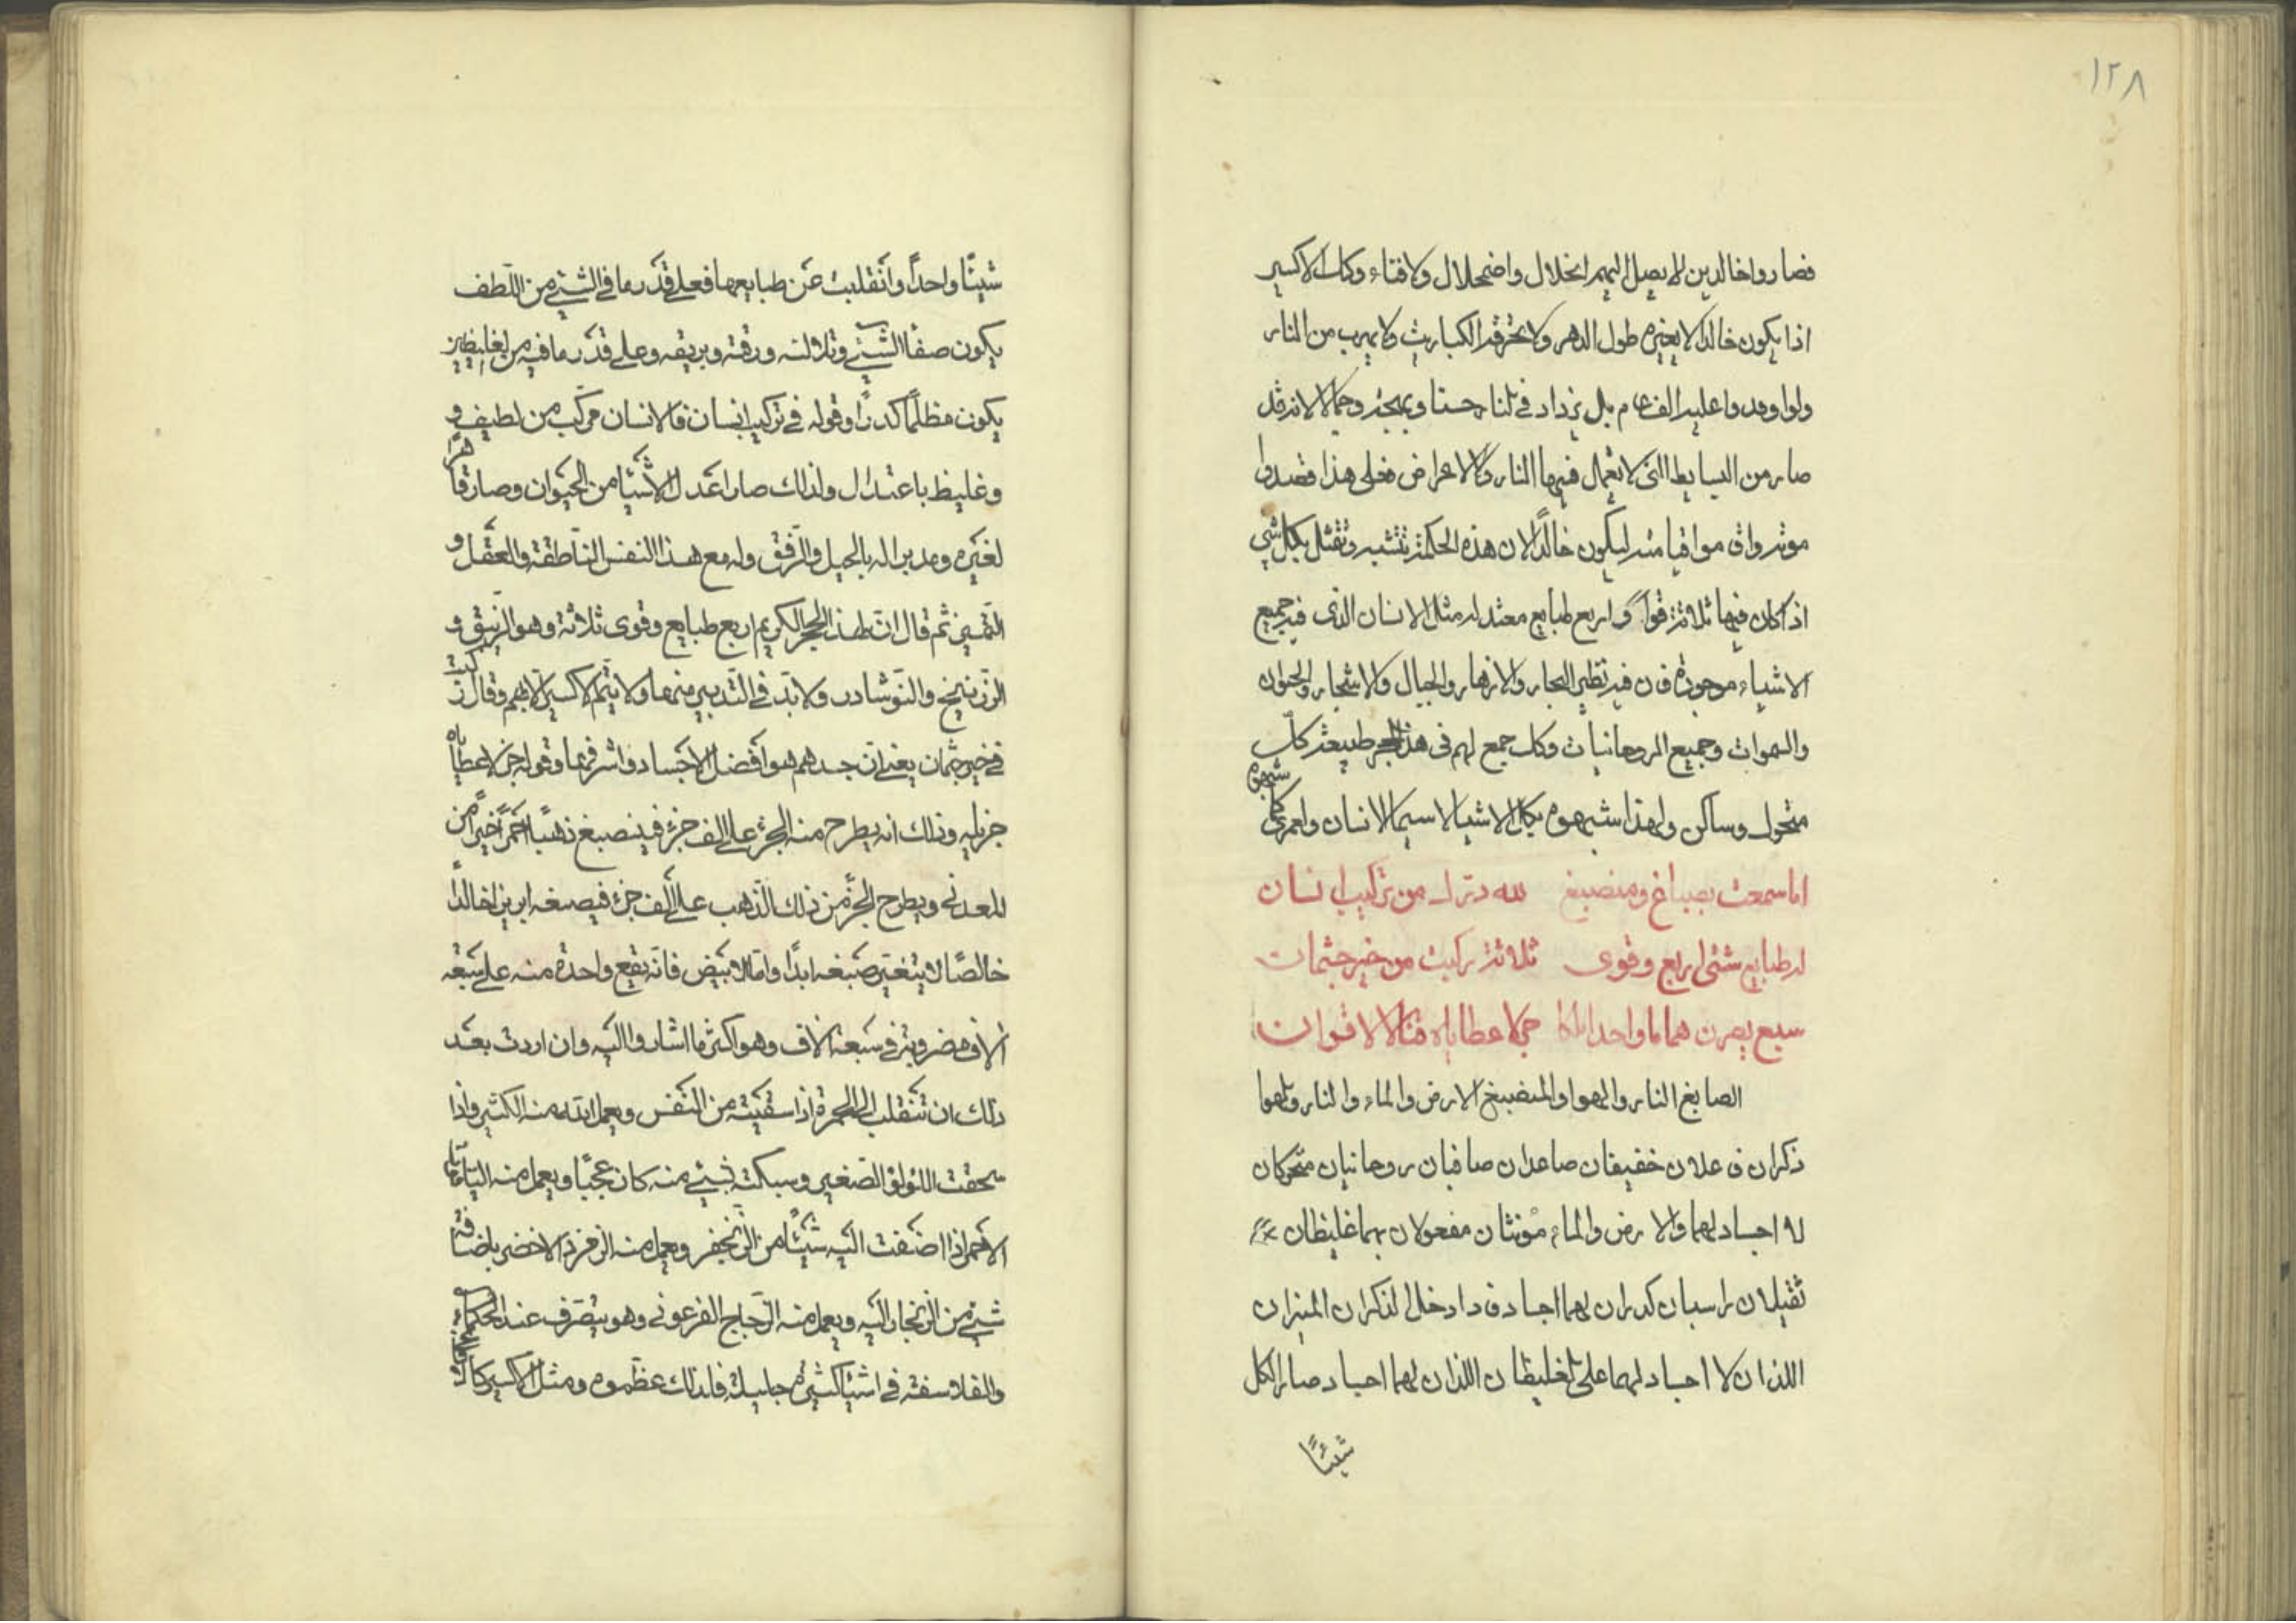 ١٢٨
فصاروا خالدين لا يصل اليهم انحلال واضمحلال ولا فناء وكذلك الاكسير
اذا يكون خالدا لا يغيره طول الدهر ولا تحرقه الكباريت ولا يهرب من النار
ولو اوقدوا عليه الف عام بل يزداد في النار حسنا وبهجة وجمالا لانه قد
صار من البسايط التي لا تعمل فيها النار ولا الاعراض فعلى هذا فعبدوا
موتهم واق مواقيا منه ليكون خالدا لان هذه الحكمة تتشبه وتمثل بكل شي
اذ كان فيها ثلاثة قوا واربع طبايع معتدلة مثل الانسان الذي فيه جميع
الاشياء موجودة فان فيه نظير البحار والانهار والجبال والاشجار والحيوان
والسموات وجميع الروحانيات وكل جمع لهم في هذا الحجر طبيعة كل
متحرك وساكن ولهذا شبهوه بكل الاشيا لا سيما الانسان ولعمري كما
شبهوه
اما سمعت بصباغ ومنصبغ لله درك من تركيب انسان
له طبايع شتى اربع وقوى ثلاثة ركبت من خير جثمان
سبع يصرن هماما واحدا ملكا جزلا عطاياه قتالا لاقران
الصابغ النار والهوا والمنصبغ الارض والماء والنار والهوا
ذكران فاعلان خفيفان صاعدان صافيان روحانيان متحركان
لا اجساد لهما والارض والماء مؤنثان مفعولان بهما غليظان
ثقيلان راسبان كدران لهما اجساد فاذا دخل الذكران المنيران
اللذان لا اجساد لهما على الغليظان اللذان لهما اجساد صار الكل
شيئًا
شيئًا واحدًا وانقلبت عن طبايعها فعلى قدر ما في الشيئ من اللطف
يكون صفا الشيئ وتلالئه ورقته وبريقه وعلى قدر ما فيه من الغليظين
يكون مظلمًا كدرًا وقوله في تركيب انسان فالانسان مركب من لطيف و
وغليظ باعتدال ولذلك صار اعدل الاشيا من الحيوان وصار قاهرًا
لغيره ومدبرا له بالحيل والرفق وله مع هذا النفس الناطقة والعقل و
التمييز ثم قال ان لهذا الحجر الكريم اربع طبايع وقوى ثلاثة وهو الزيبق و
الزرنيخ والنوشادر ولا بد في التدبير منها ولا يتم الاكسير الا بهم وقال ركبت
في خير جثمان يعني ان جسدهم هو افضل الاجساد واشرفها وقوله جزلا عطاياه
جزيله وذلك انه يطرح منه الجزء على الف جزء فينصبغ ذهبًا احمرًا خيرًا من
المعدني ويطرح الجزء من ذلك الذهب على الف جزء فيصبغه ابريزا خالدًا
خالصًا لا يتغير صبغه ابدًا واما الابيض فانه يقع واحدة منه على سبعة
آلاف مضروبة في سبعة آلاف وهو اكثر ما اشاروا اليه وان اردت بعد
ذلك ان تنقلب الى الحمرة اذا سقيته من النفس ويعمل ابدا منه الكثير واذا
سحقت اللؤلؤ الصغير وسبكته بشيئ منه كان عجبًا ويعمل منه الياقوت
الاحمر اذا اضفت اليه شيئًا من الزنجفر ويعمل منه الزمرد الاخضر باضافة
شيئ من الزنجار اليه ويعمل منه الزجاج الفرعوني وهو يتصرف عند الحكماء
والفلاسفة في اشيا كثيرة جليلة فلذلك عظموه ومثل الاكسير